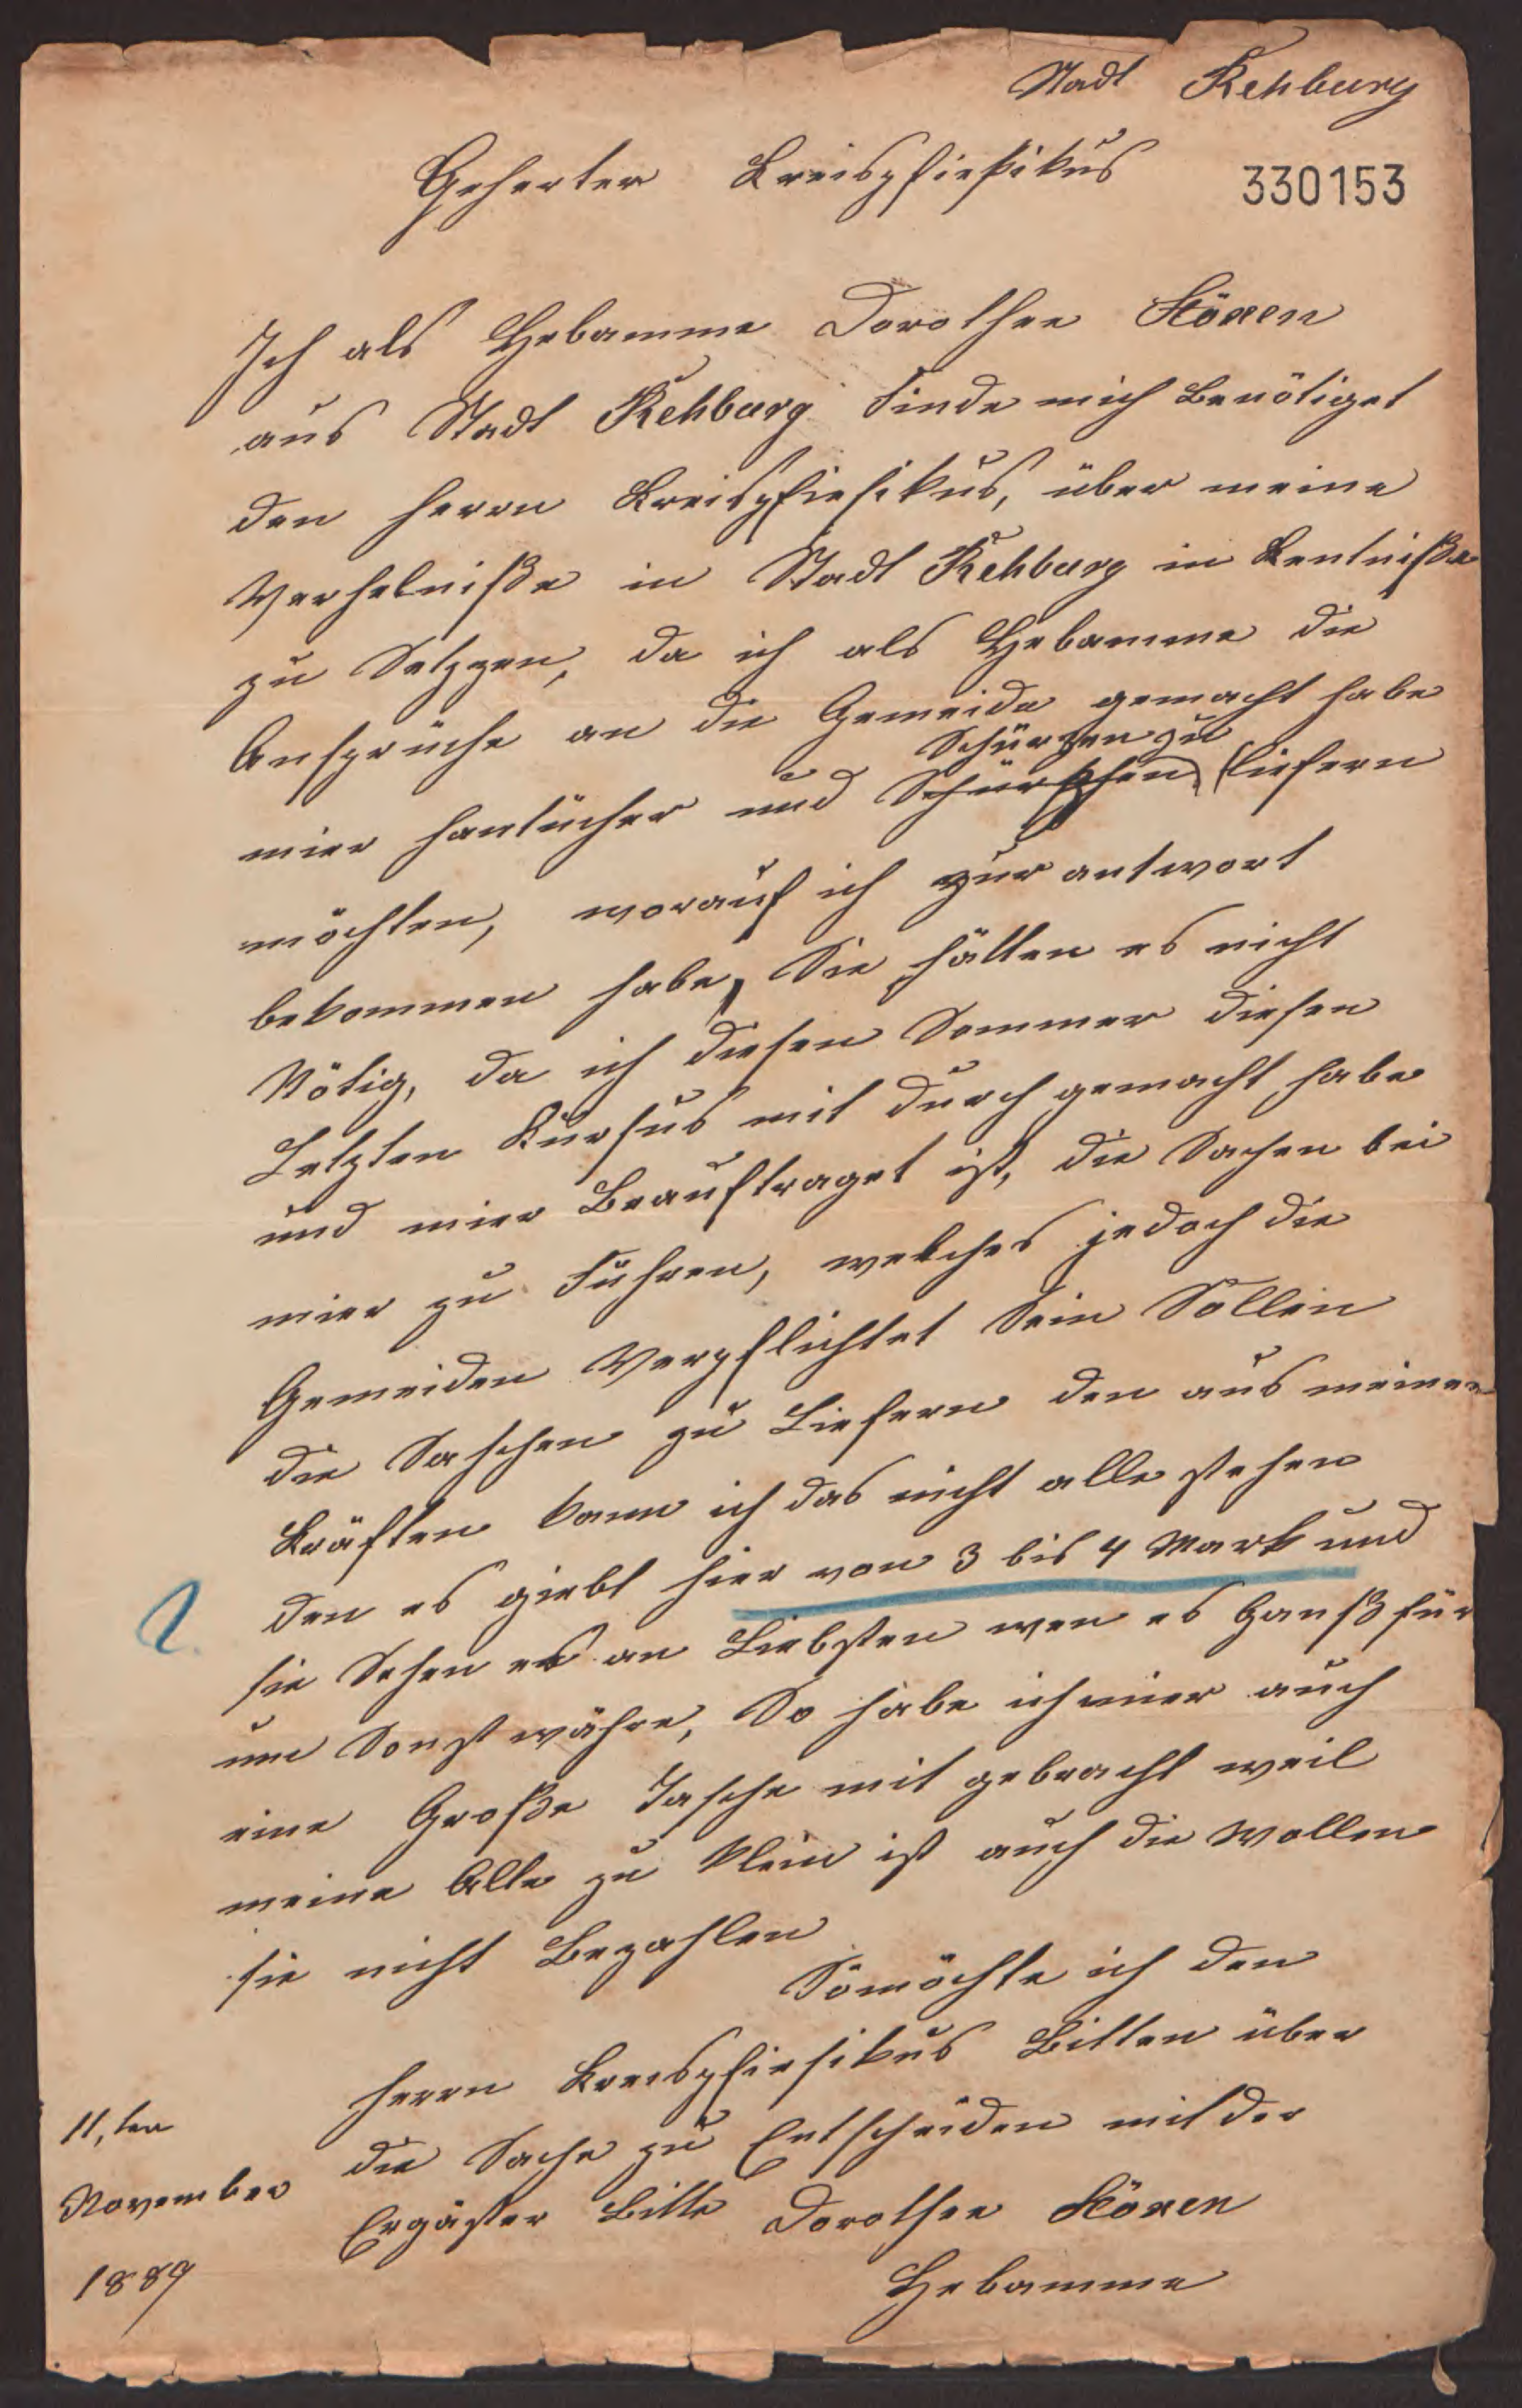 Stadt Rehburg
Geherter Kreispfiesikus
330153
Ich als Hebamme Dorothee Hönen
aus Stadt Rehburg finde mich Benötiget
den herrn Kreispfiesikus, über meine
Verhelniße in Stadt Rehburg in Kentniße
zu Setzzen, da ich als Hebamme die
Ansprüche an die Gemeide gemacht habe
Schürzen zu
mier hantücher und liefern
möchten, worauf ich zur antwort
bekommen habe, Sie hätten es nicht
Nötig, da ich diesen Sommer diesen
Letzten Kursus mit durch gemacht habe
und mier Beauftraget ist, die Sachen bei
mier zu Führen, welches jedoch die
Gemeiden Verpflichtet Sein Sollen
die Saschen zu Liefern den aus meinen
Kräften kann ich das nicht alle stehen
den es giebt hier von 3 bis 4 Mark und
sie Sehen es an Liebsten wen es Ganß für
um Sonst währe, So habe ich mier auch
eine Große Tasche mit gebracht weil
meine Alte zu Klein ist auch die wollen
sie nicht Bezahlen
Somöchte ich den
herrn Kreispfiesikus Bitten über
die Sache zu Entscheiden mit der
Ergäster Bitte Dorothee Hönen
Hebamme
11, ten
November
1889